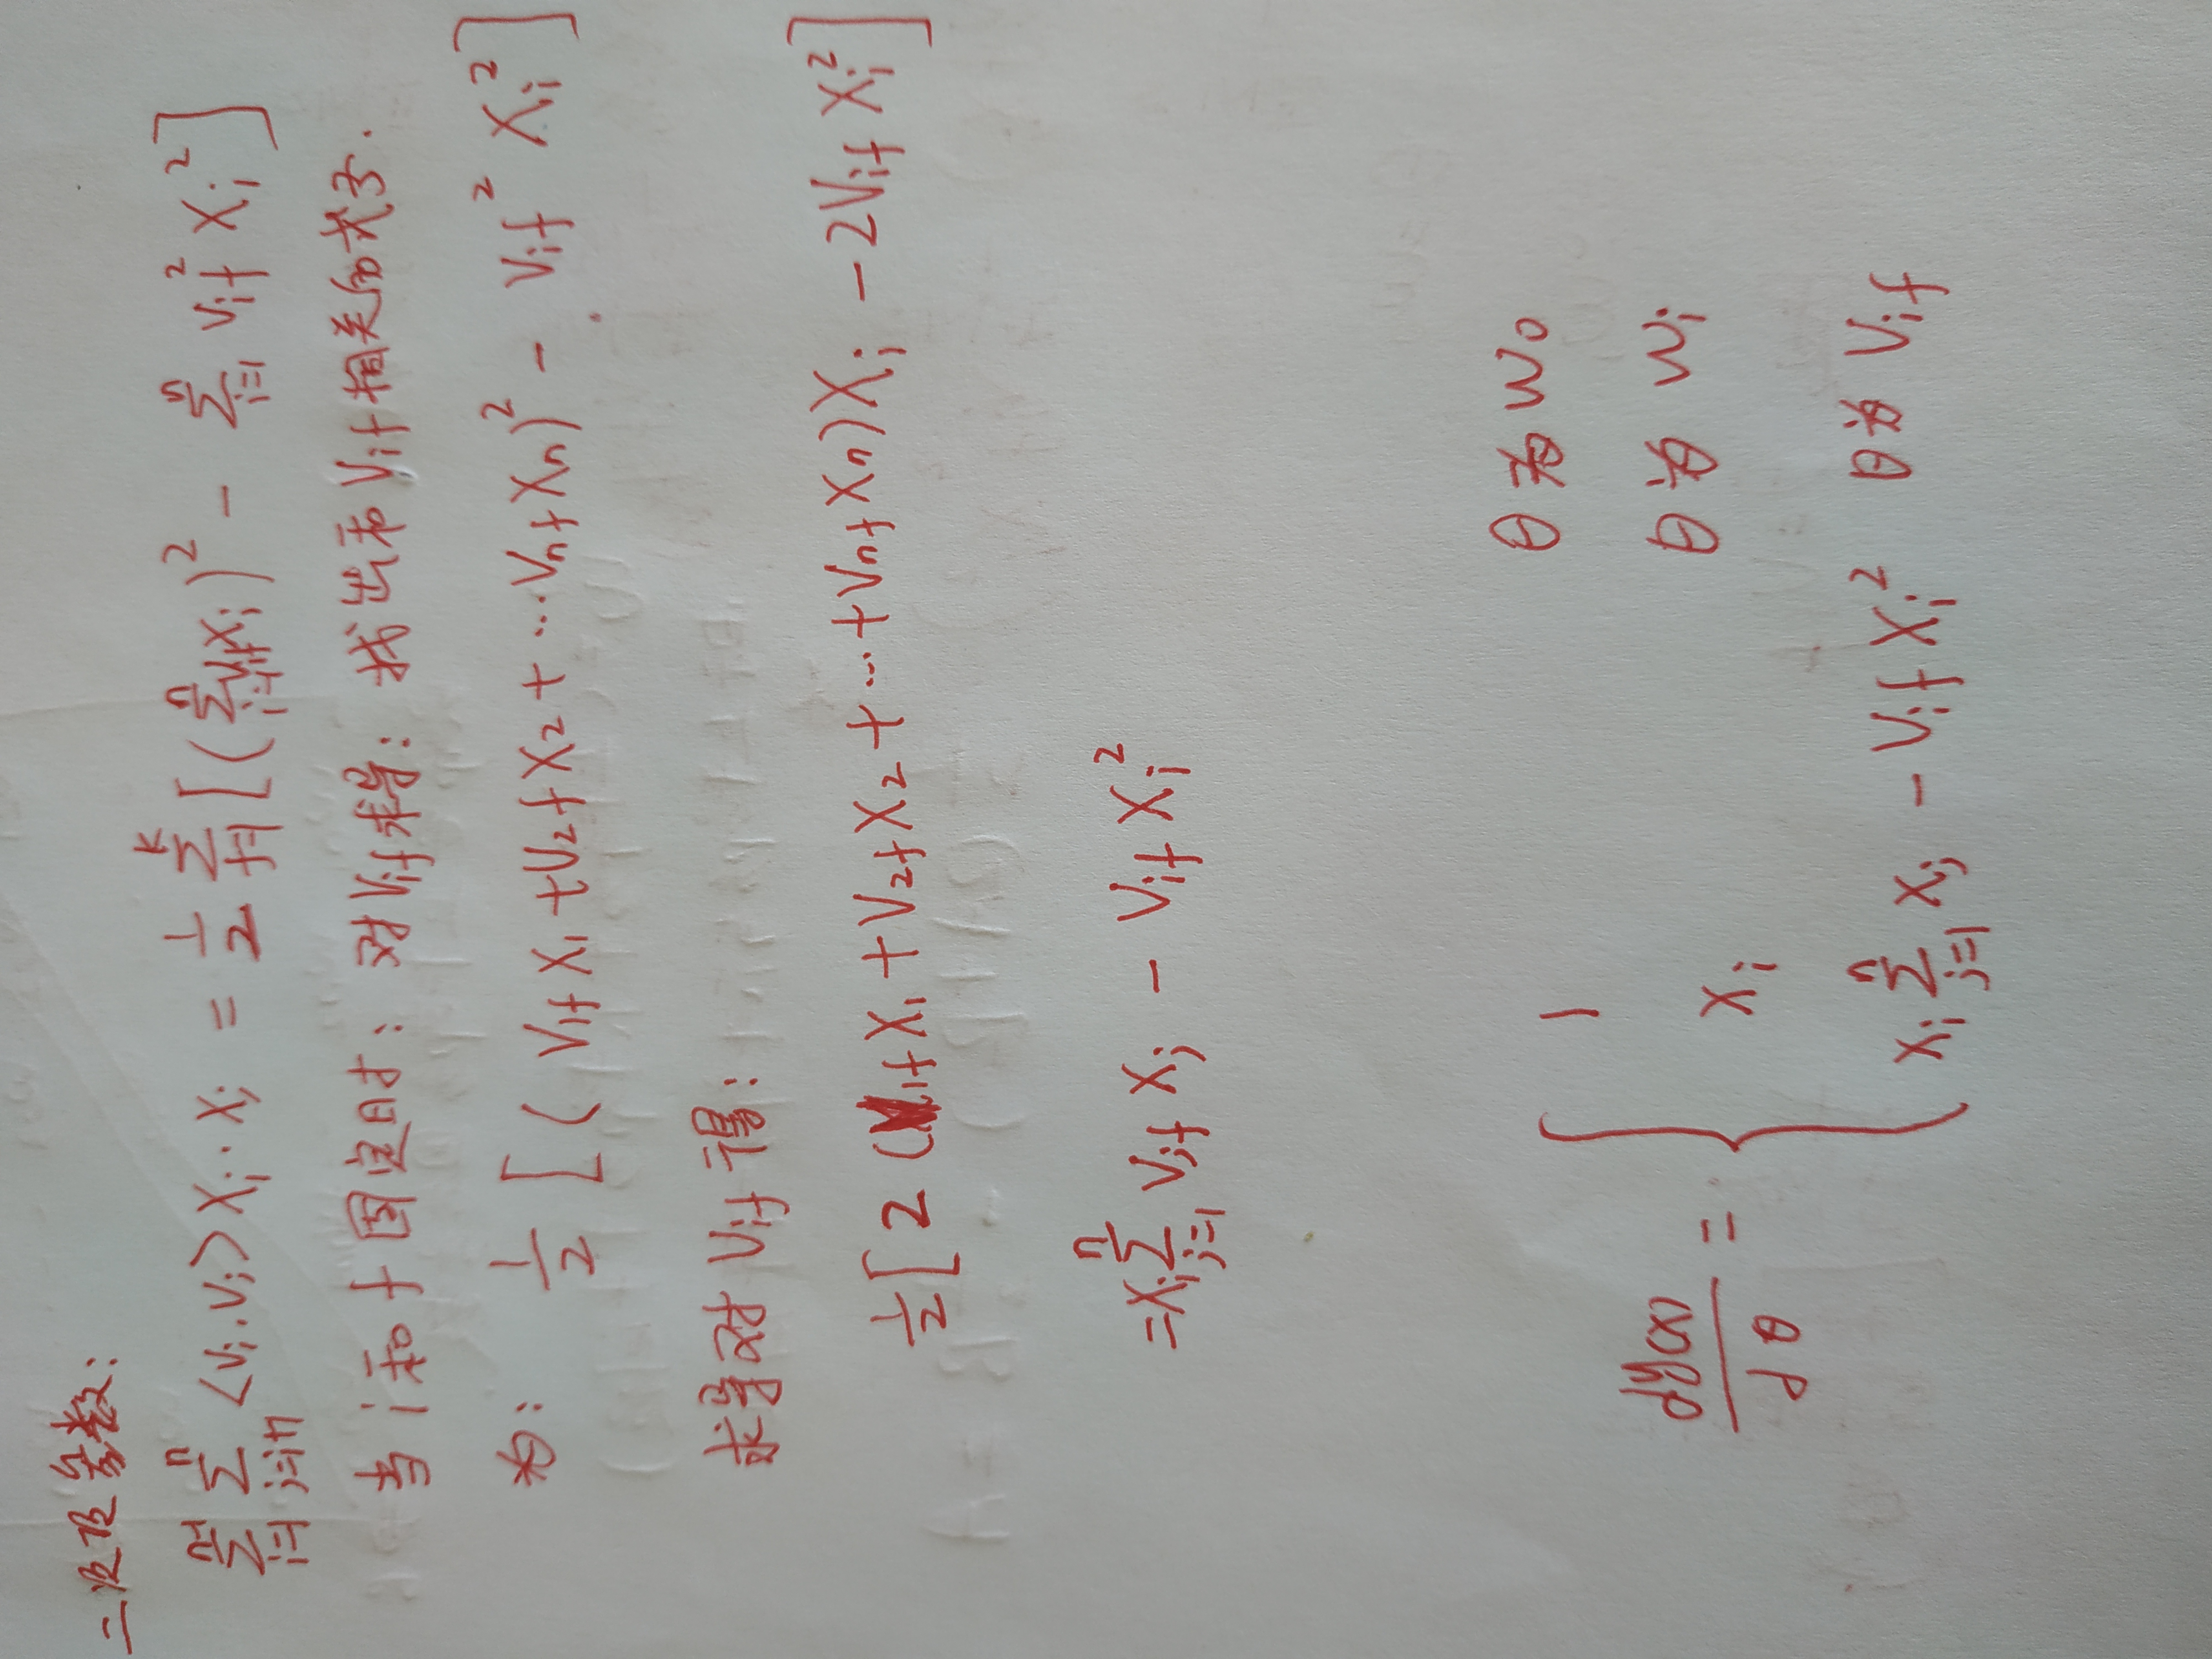 二次项参数:
$\sum_{i=1}^{n-1} \sum_{j=i+1}^{n} <v_i, v_j> x_i \cdot x_j = \frac{1}{2} \sum_{f=1}^{k} [(\sum_{i=1}^{n} v_{if} x_i)^2 - \sum_{i=1}^{n} v_{if}^2 x_i^2]$
当 i 和 f 固定时: 对 $V_{if}$ 求导: 找出和 $V_{if}$ 相关的式子.
为: $\frac{1}{2} [(V_{1f} X_1 + V_{2f} X_2 + \cdots V_{nf} X_n)^2 - V_{if}^2 X_i^2]$
求导对 $V_{if}$ 得:
$\frac{1}{2} [2 (V_{1f} X_1 + V_{2f} X_2 + \cdots + V_{nf} X_n) X_i - 2 V_{if} X_i^2]$
$= X_i \sum_{j=1}^{n} V_{jf} X_j - V_{if} X_i^2$
1 θ为 $W_0$
$\frac{dy(x)}{dθ} = \{ x_i$ θ为 $W_i$
$x_i \sum_{j=1}^{n} x_j - V_{if} X_i^2$ θ为 $V_{if}$